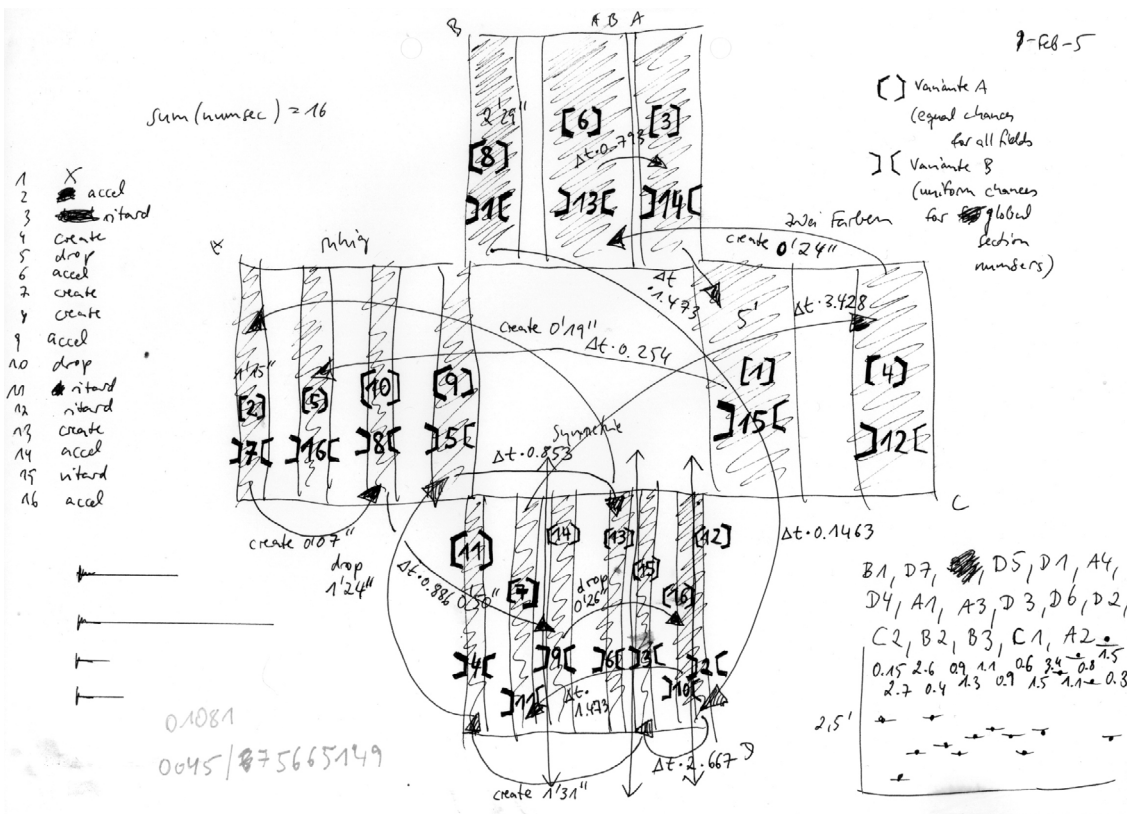 B
A B A
9-Feb-5
sum(numsec) = 16
[ ] Variante A
(equal chances
for all fields
] [ Variante B
(uniform chances
for global
section
numbers)
1 X
2 accel
3 ritard
4 create
5 drop
6 accel
7 create
8 create
9 accel
10 drop
11 ritard
12 ritard
13 create
14 accel
15 ritard
16 accel
2'29"
[8]
]1[
[6]
Δt·0.793
]13[
[3]
]14[
zwei Farben
create 0'24"
A
ruhig
Δt
·1.473
5'
Δt·3.428
create 0'19"
Δt·0.254
1'15"
[2]
]7[
[5]
]16[
[10]
]8[
[9]
]5[
[1]
]15[
[4]
]12[
Symmetrie
Δt·0.853
C
create 0'07"
drop
1'24"
Δt·0.886
0'50"
drop
0'26"
Δt·0.1463
[11]
]4[
[7]
]11[
[14]
]9[
[13]
]6[
[15]
]3[
[16]
]10[
[12]
]2[
Δt·
1.473
Δt·2.667
D
create 1'31"
B1, D7, D5, D1, A4,
D4, A1, A3, D3, D6, D2,
C2, B2, B3, C1, A2
0.15 2.6 0.9 1.1 0.6 3.4 0.8 1.5
2.7 0.4 1.3 0.9 1.5 1.1 0.3
2,5'
01081
0045/875665149